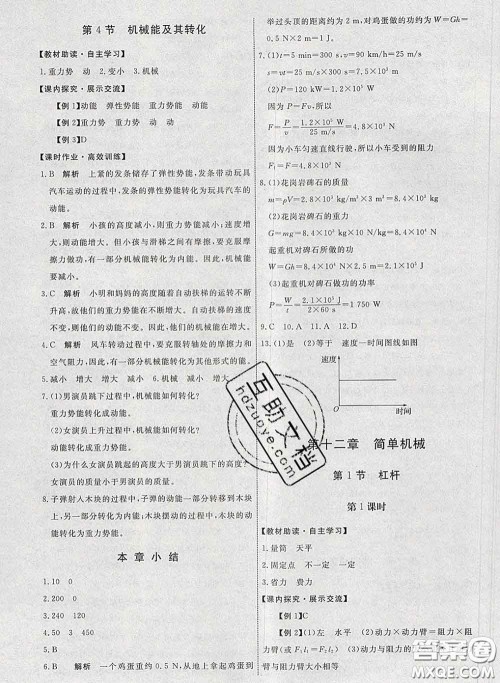 第4节 机械能及其转化
【教材助读·自主学习】
1.重力势 动 2.变小 3.机械
【课内探究·展示交流】
【例1】动能 弹性势能 重力势能 动能
【例2】重力势 重力势 动 动
【例3】D
【课时作业·高效训练】
1.B 解析 上紧的发条储存了弹性势能,发条带动玩
具汽车运动的过程中,发条的弹性势能转化为玩具汽车的
动能。
2.B 解析 小孩的高度减小,则重力势能减小;速度增
大,则动能增大。但因小孩与滑梯之间有摩擦,要克服摩
擦力做功,有一部分机械能转化为内能。因此,机械能要
减小。
3.C 解析 小明和妈妈的高度随着自动扶梯的运转不断升
高,故他们的重力势能不断增大;自动扶梯的速度不
变,则他们的动能不变。因此,他们的机械能增大。
4.C 解析 风车转动过程中,要克服转轴处的摩擦力和
空气阻力,因此,有一部分机械能转化为其他形式的能。
5.减小 增大 增大 减小 增大
6.(1)男演员跳下过程中,机械能如何转化?
重力势能转化成动能。
(2)女演员弹起过程中,机械能如何转化?
动能转化成重力势能。
(3)为什么女演员跳起的高度大于男演员跳下的高度?
女演员的质量小于男演员的质量。
8.子弹射入木块的过程中,子弹的一部分动能转移为木块
的动能;子弹与木块一起运动的过程中,子弹与木块的动
能转化为重力势能。
本章小结
1.10 0
2.20 0
3.240 120
4.50 450
5.B
6.B 解析 一个鸡蛋重约0.5 N,从地上拿起鸡蛋到
举过头顶的距离约为2 m,对鸡蛋做的功约为W=Gh=
0.5 N×2 m=1 J。
7.(1)t=5 min=300 s v=90 km/h=25 m/s
s=vt=25 m/s×300 s=7.5×10³ m
(2)P=120 kW=1.2×10⁵ W
因为P=Fv,所以
F=P/v=1.2×10⁵ W/25 m/s=4.8×10³ N
小车匀速直线行驶,所以小车受到的阻力
F₁=F=4.8×10³ N
8.(1)花岗岩碑石的质量
(2)花岗岩碑石的重力
起重机对碑石所做的功
起重机对碑石做功的功率
P=W/t=2.1×10⁵ J/2×60 s=1 750 W
9.C 10.A 11.A 12.D
13.(1)是 (2)等于 速度一时间图线如图
速度
0
时间
第十二章 简单机械
第1节 杠杆
第1课时
【教材助读·自主学习】
1.量筒 天平
2.固定点 不一定 一定
3.省力 费力
【课内探究·展示交流】
【例1】C
【例2】(1)左 水平 (2)动力×动力臂=阻力×阻
力臂与阻力臂大小相等
互助文档
hdzuoye.com
答案圈
MXQE.COM